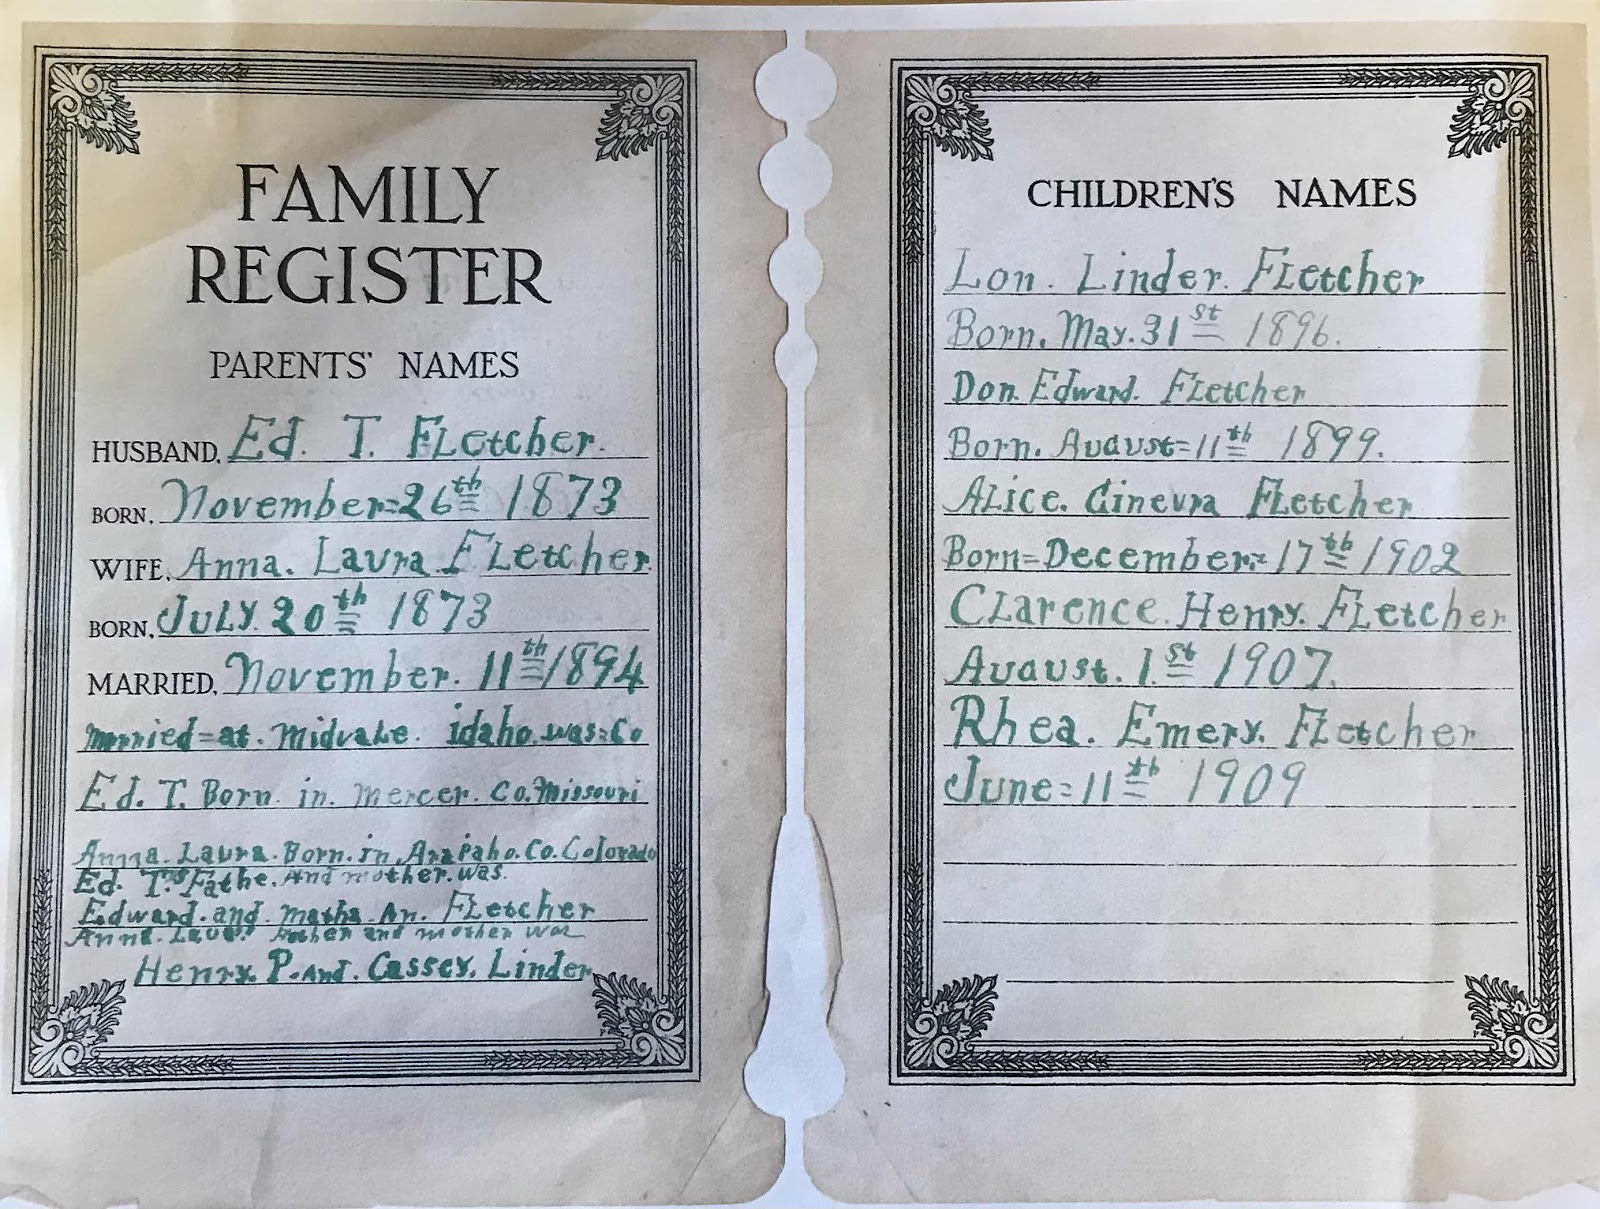 FAMILY
REGISTER
PARENTS' NAMES
HUSBAND, Ed. T. FLetcher.
BORN, November=26th 1873
WIFE, Anna. Laura FLetcher
BORN, JuLy. 20th 1873
MARRIED, November. 11th 1894
married=at. midvale. idaho. was=Co
Ed. T. Born in. mercer. co. Missouri
Anna. Laura. Born. in. Arapaho. Co. Colorado
Ed. T.'s Fathe. And mother. was.
Edward. and. matha. An. FLetcher
Anna. Laura father and mother was
Henry. P. And. Cassey. Linder
CHILDREN'S NAMES
Lon. Linder. FLetcher
Born. May. 31st 1896.
Don. Edward. FLetcher
Born. August=11th 1899.
ALice. Ginevra FLetcher
Born=December=17th 1902
CLarence. Henry. FLetcher
August. 1.st 1907.
Rhea. Emery. FLetcher
June=11th 1909